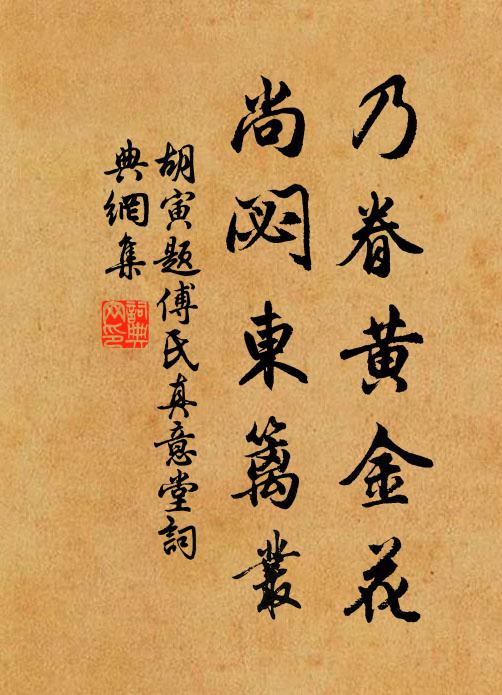 乃眷黄金花
尚閟東篱叢
胡寅题傅氏真意堂詞
典網集
詞典
网印